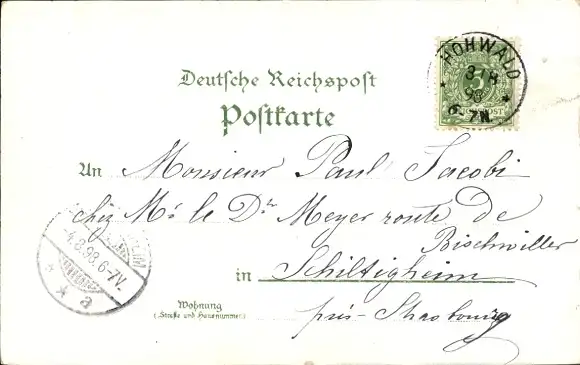 HOHWALD
3 8
98
6-7N.
5
Deutsche Reichspost
Postkarte
An Monsieur Paul Jacobi
chez Mr. le Dr. Meyer route de
Bischwiller
in Schiltigheim
près Strasbourg
Wohnung
(Straße und Hausnummer)
4.8.98.6-7V.
* a